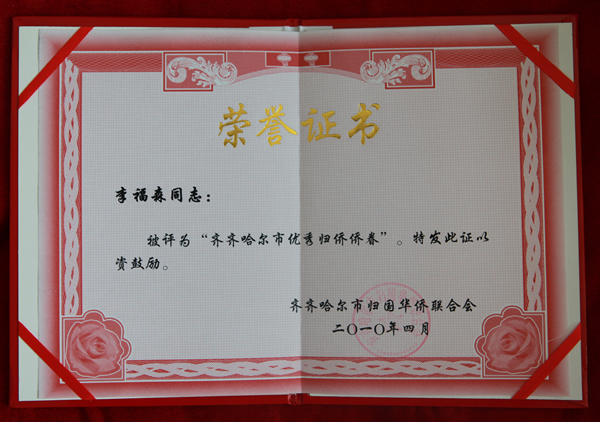 荣誉证书
李福森同志：
被评为“齐齐哈尔市优秀归侨侨眷”。特发此证以
资鼓励。
齐齐哈尔市归国华侨联合会
二〇一〇年四月